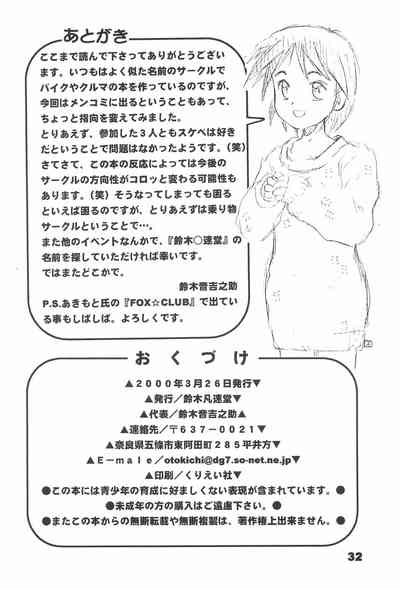 あとがき
ここまで読んで下さってありがとうござい
ます。いつもはよく似た名前のサークルで
バイクやクルマの本を作っているのですが、
今回はメンコミに出るということもあって、
ちょっと指向を変えてみました。
とりあえず、参加した3人ともスケベは好き
だということで問題はなかったようです。(笑)
さてさて、この本の反応によっては今後の
サークルの方向性がコロッと変わる可能性も
あります。(笑)そうなってしまっても困る
といえば困るのですが、とりあえずは乗り物
サークルということで…。
また他のイベントなんかで、『鈴木○速堂』の
名前を探していただければ幸いです。
ではまたどこかで。
鈴木音吉之助
P.S.あきもと氏の『FOX☆CLUB』で出てい
る事もしばしば。よろしくです。
おくづけ
▲2000年3月26日発行▼
▲発行／鈴木凡速堂▼
▲代表／鈴木音吉之助▲
▼連絡先／〒637-0021▼
▲奈良県五條市東阿田町285平井方▼
▲E-male／otokichi@dg7.so-net.ne.jp▼
▲印刷／くりえい社▼
●この本には青少年の育成に好ましくない表現が含まれています。●
●未成年の方の購入はご遠慮下さい。●
●またこの本からの無断転載や無断複製は、著作権上出来ません。●
32